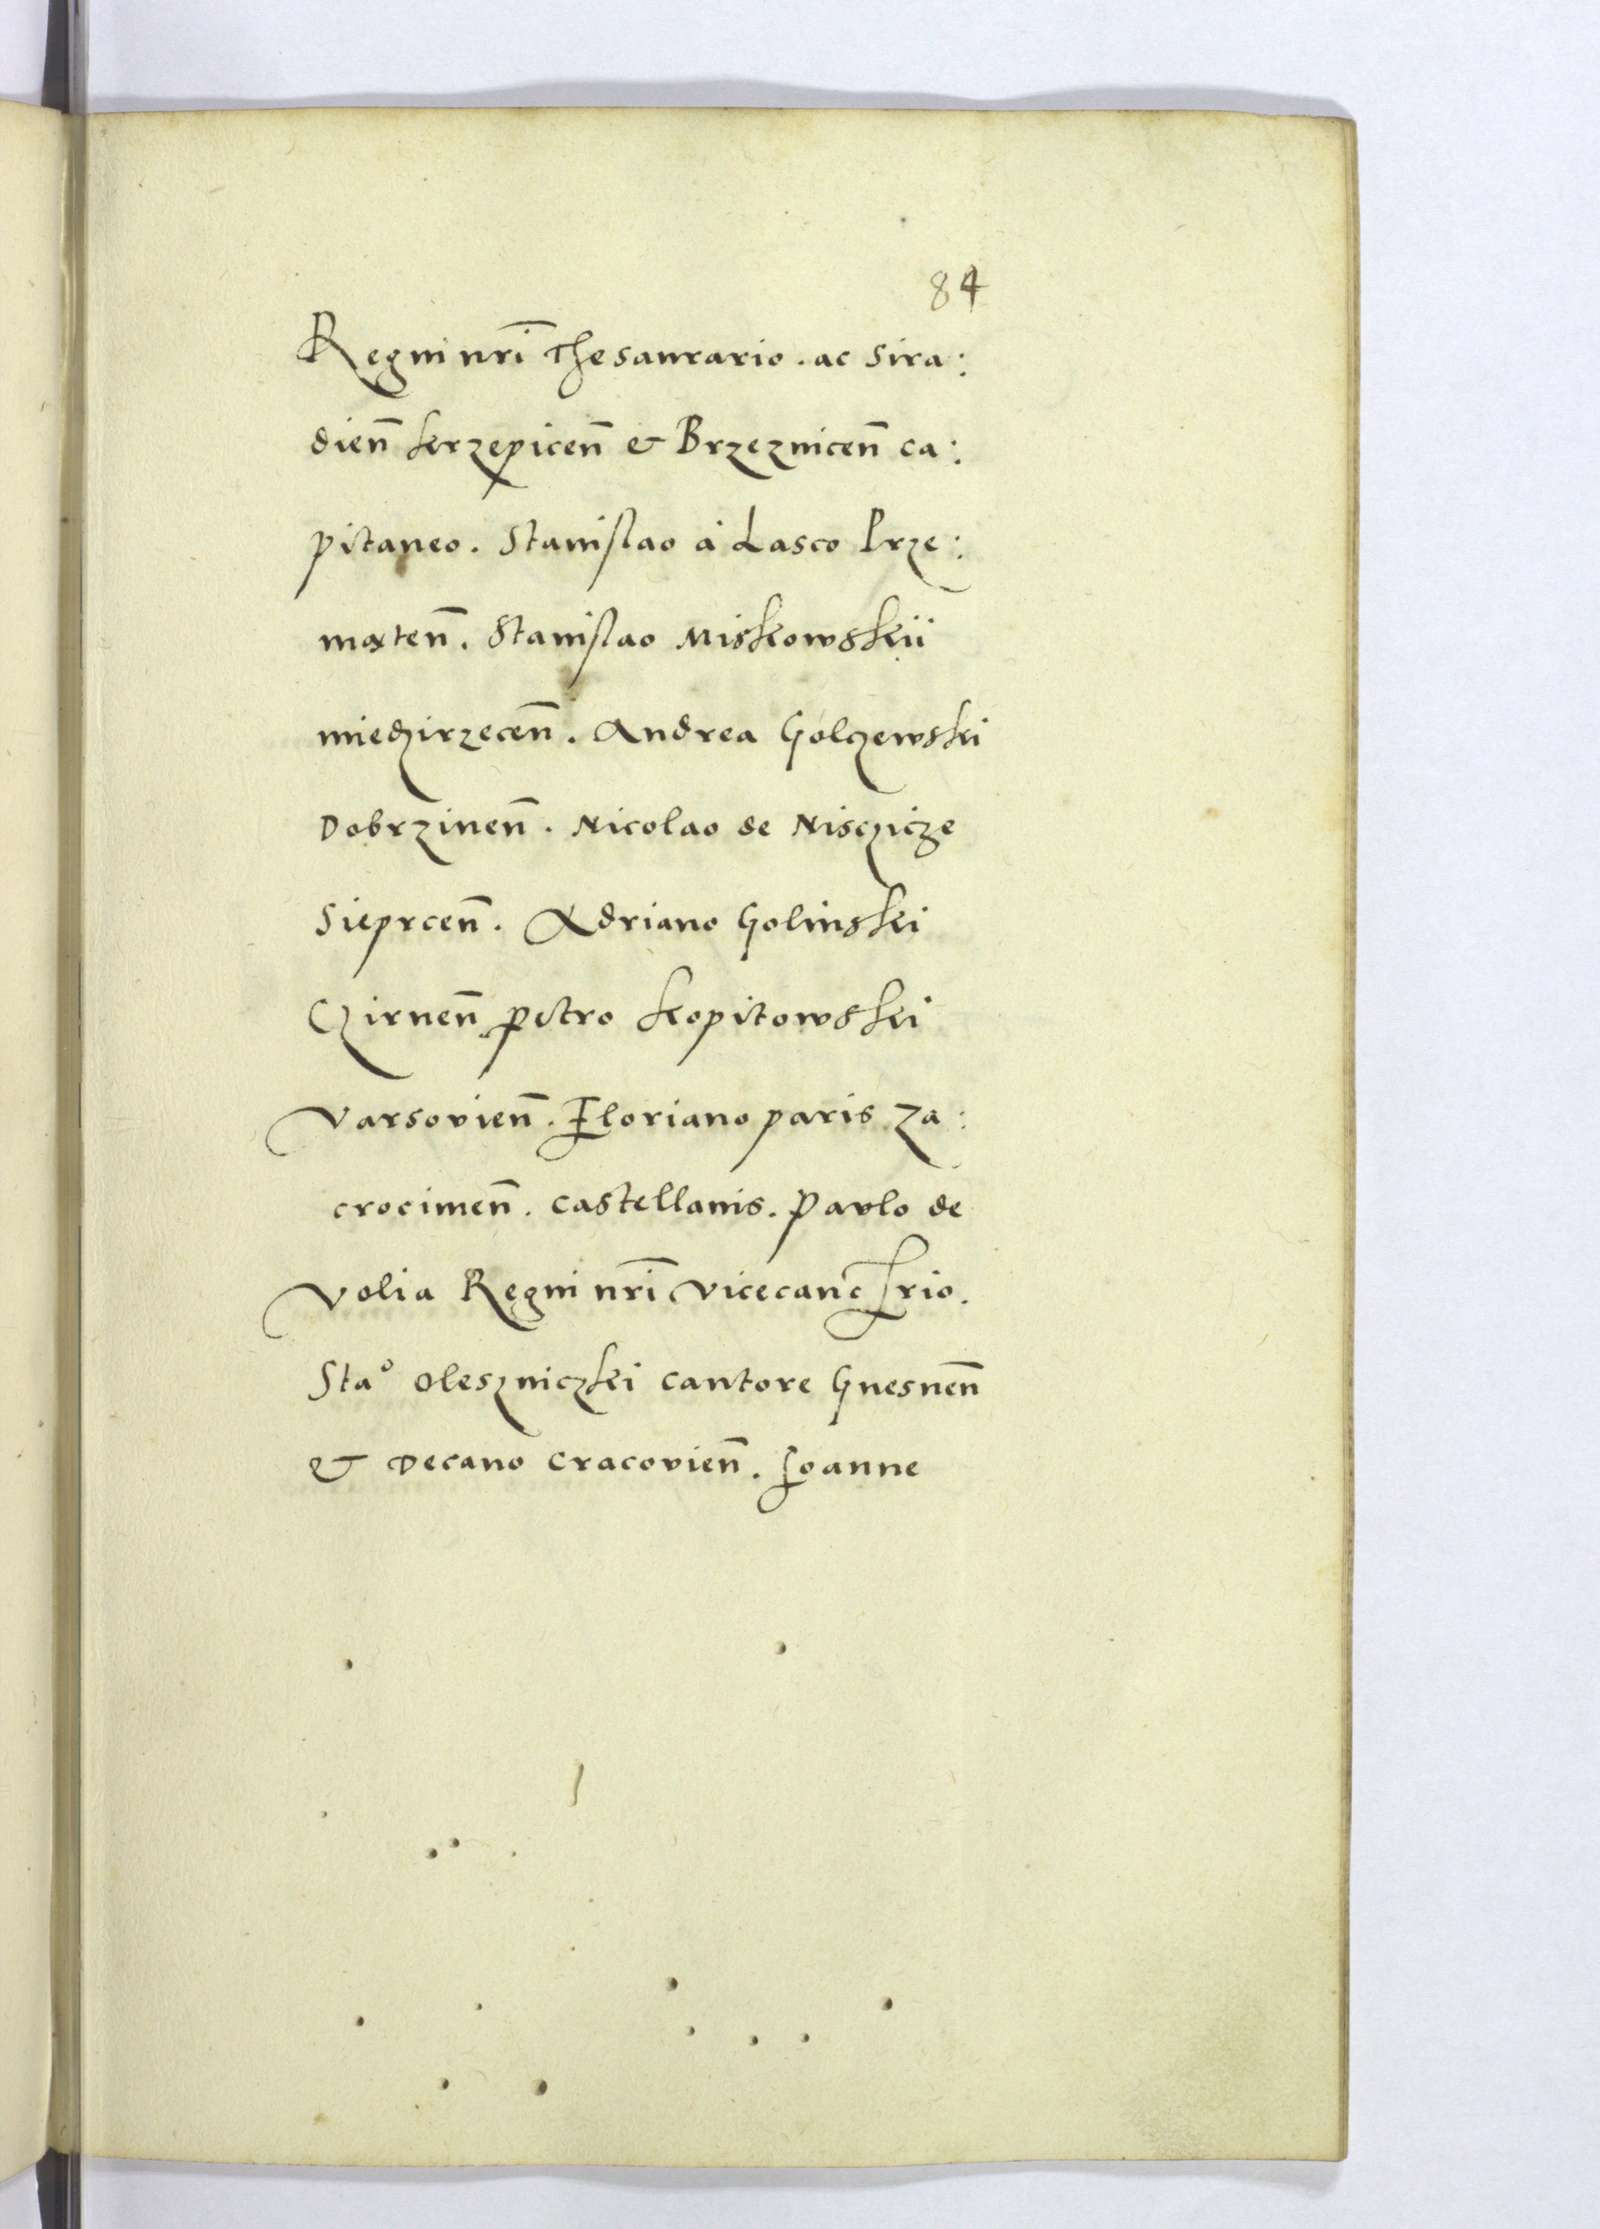 84
Regni nr̃i Thesaurario. ac Sira:
dien̄ krzepicen̄ & Brzeznicen̄ ca:
pitaneo. Stanislao à Lasco Prze:
mxten̄. Stanislao Miskowskii
miedzirzecen̄. Andrea Golczewski
Dobrzinen̄. Nicolao de Nisczicze
Sieprcen̄. Adriano Golinski
Czirnen̄ Petro kopitowski
Varsovien̄. Floriano paris Za:
crocimen̄. castellanis. Pavlo de
Volia Regni nr̃i vicecanc̃ſrio.
Sta° Oleszniczki cantore Gnesnen̄
& Decano Cracovien̄. Ioanne